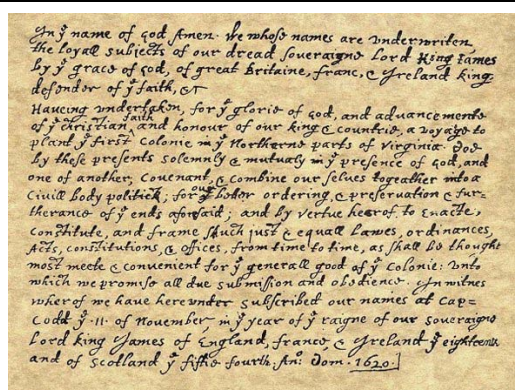 In yͤ name of god Amen. We whose names are underwriten,
the loyall subjects of our dread soveraigne Lord King James
by yͤ grace of God, of great Britaine, franc, & Ireland king,
defender of yͤ faith, &c
Haveing undertaken, for yͤ glorie of god, and advancemente
of yͤ christian faith and honour of our king & countrie, a voyage to
plant yͤ first colonie in yͤ Northerne parts of Virginia. doe
by these presents solemnly & mutualy in yͤ presence of God, and
one of another, covenant, & combine our selves togeather into a
civill body politick; for our better ordering, & preservation & fur-
therance of yͤ ends aforesaid; and by vertue hearof to enacte,
constitute, and frame shuch just & equall lawes, ordinances,
Acts, constitutions, & offices, from time to time, as shall be thought
most meete & convenient for yͤ generall good of yͤ colonie: unto
which we promise all due submission and obedience. In witnes
wherof we have hereunder subscribed our names at Cap=
Codd yͤ .11. of November, in yͤ year of yͤ raigne of our soveraigne
Lord king James of England, france, & Ireland yͤ eighteenth
and of Scotland yͤ fiftie fourth. Anͦ: Dom. 1620.